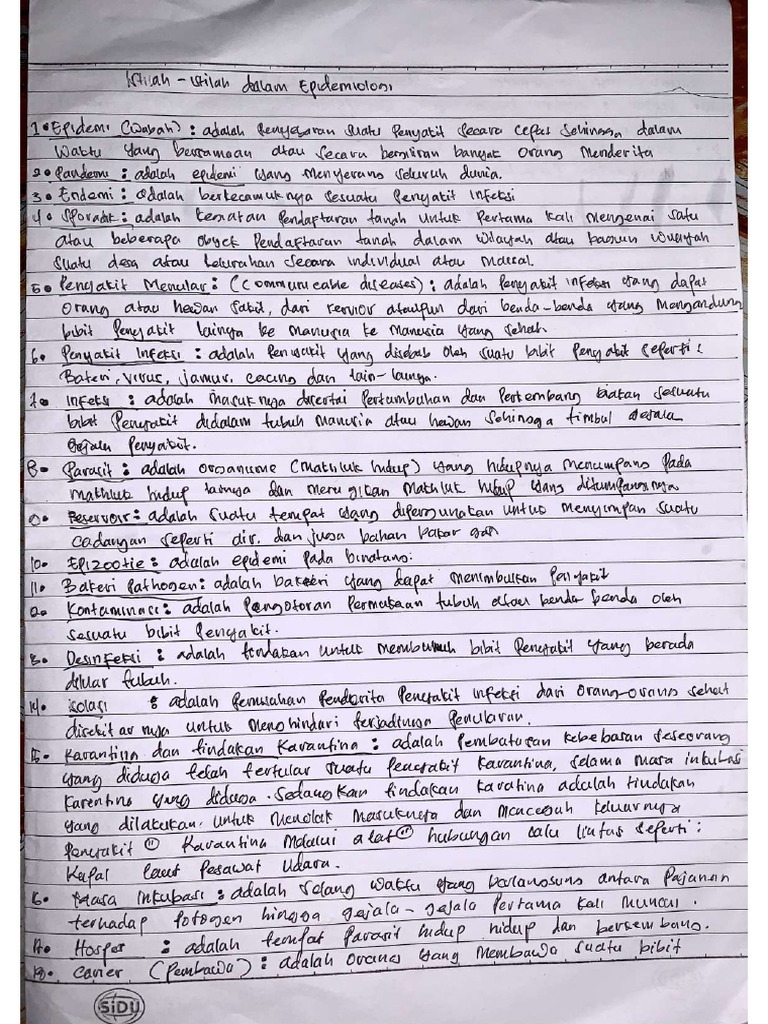 Istilah - istilah dalam Epidemiologi
1. Epidemi (Wabah) : adalah Penyebaran suatu Penyakit secara cepat sehingga dalam
Waktu yang bersamaan atau secara bergiliran banyak orang Menderita
2. Pandemi : adalah epidemi yang menyerang seluruh dunia.
3. Endemi : adalah berkecamuknya sesuatu Penyakit Infeksi
4. Sporadik : adalah kegiatan Pendaftaran tanah untuk Pertama kali mengenai satu
atau beberapa obyek Pendaftaran tanah dalam wilayah atau bagian wilayah
suatu desa atau kelurahan secara individual atau massal.
5. Penyakit Menular : (Communicable diseases) : adalah Penyakit infeksi yang dapat
orang atau hewan sakit, dari reservior ataupun dari benda-benda yang Mengandung
bibit Penyakit lainya ke manusia ke Manusia yang sehat
6. Penyakit Infeksi : adalah Penyakit yang disebab oleh suatu bibit Penyakit seperti :
Bateri, virus, jamur, cacing dan lain-lainya.
7. Infeksi : adalah masuknya disertai Pertumbuhan dan Perkembang biakan sesuatu
bibit Penyakit didalam tubuh manusia atau hewan sehingga timbul gejala
gejala Penyakit.
8. Parasit : adalah organisme (makhluk hidup) yang hidupnya menumpang Pada
makhluk hidup lainya dan merugikan makhluk hidup yang ditumpanginya
9. Reservoir : adalah suatu tempat yang dipergunakan untuk menyimpan suatu
cadangan seperti air. dan juga bahan bakar gas
10. Epizootie : adalah epidemi pada binatang.
11. Bakteri Pathogen : adalah bakteri yang dapat menimbulkan Penyakit
12. Kontaminasi : adalah Pengotoran Permukaan tubuh atau benda-benda oleh
sesuatu bibit Penyakit.
13. Desinfeksi : adalah tindakan untuk membunuh bibit Penyakit yang berada
diluar tubuh.
14. isolasi : adalah Pemisahan Penderita Penyakit infeksi dari orang-orang sehat
disekitarnya untuk menghindari terjadinya Penularan.
15. Karantina dan tindakan Karantina : adalah Pembatasan kebebasan seseorang
yang diduga telah tertular suatu Penyakit karantina, selama masa inkubasi
Karentina yang diduga. Sedangkan tindakan karatina adalah tindakan
yang dilakukan. untuk menolak masuknya dan mencegah keluarnya
Penyakit Karantina Melalui alat hubungan lalu lintas seperti :
Kapal laut Pesawat Udara.
16. Masa Inkubasi : adalah selang waktu yang berlangsung antara Pajanan
terhadap Patogen hingga gejala-gejala Pertama kali muncul.
17. Hospes : adalah tempat Parasit hidup hidup dan berkembang.
18. Carier (Pembawa) : adalah orang yang membawa suatu bibit
SiDU